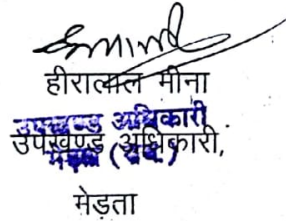 हीरालाल मीना
उपखण्ड अधिकारी
उपखण्ड अधिकारी,
मेड़ता